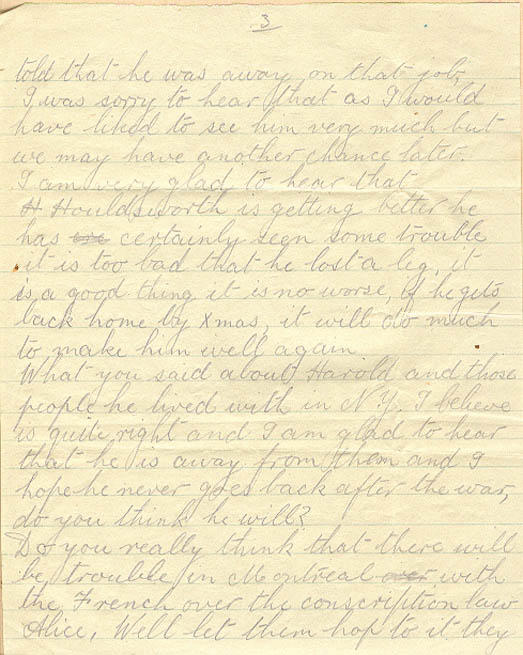 3
told that he was away on that job,
I was sorry to hear that as I would
have liked to see him very much but
we may have another chance later.
I am very glad to hear that
H. Houldsworth is getting better he
has certainly seen some trouble
it is too bad that he lost a leg, it
is a good thing it is no worse, if he gets
back home by Xmas, it will do much
to make him well again
What you said about Harold and those
people he lived with in N.Y. I believe
is quite right and I am glad to hear
that he is away from them and I
hope he never goes back after the war,
do you think he will?
Do you really think that there will
be trouble in Montreal over with
the French over the conscription law
Alice, Well let them hop to it they